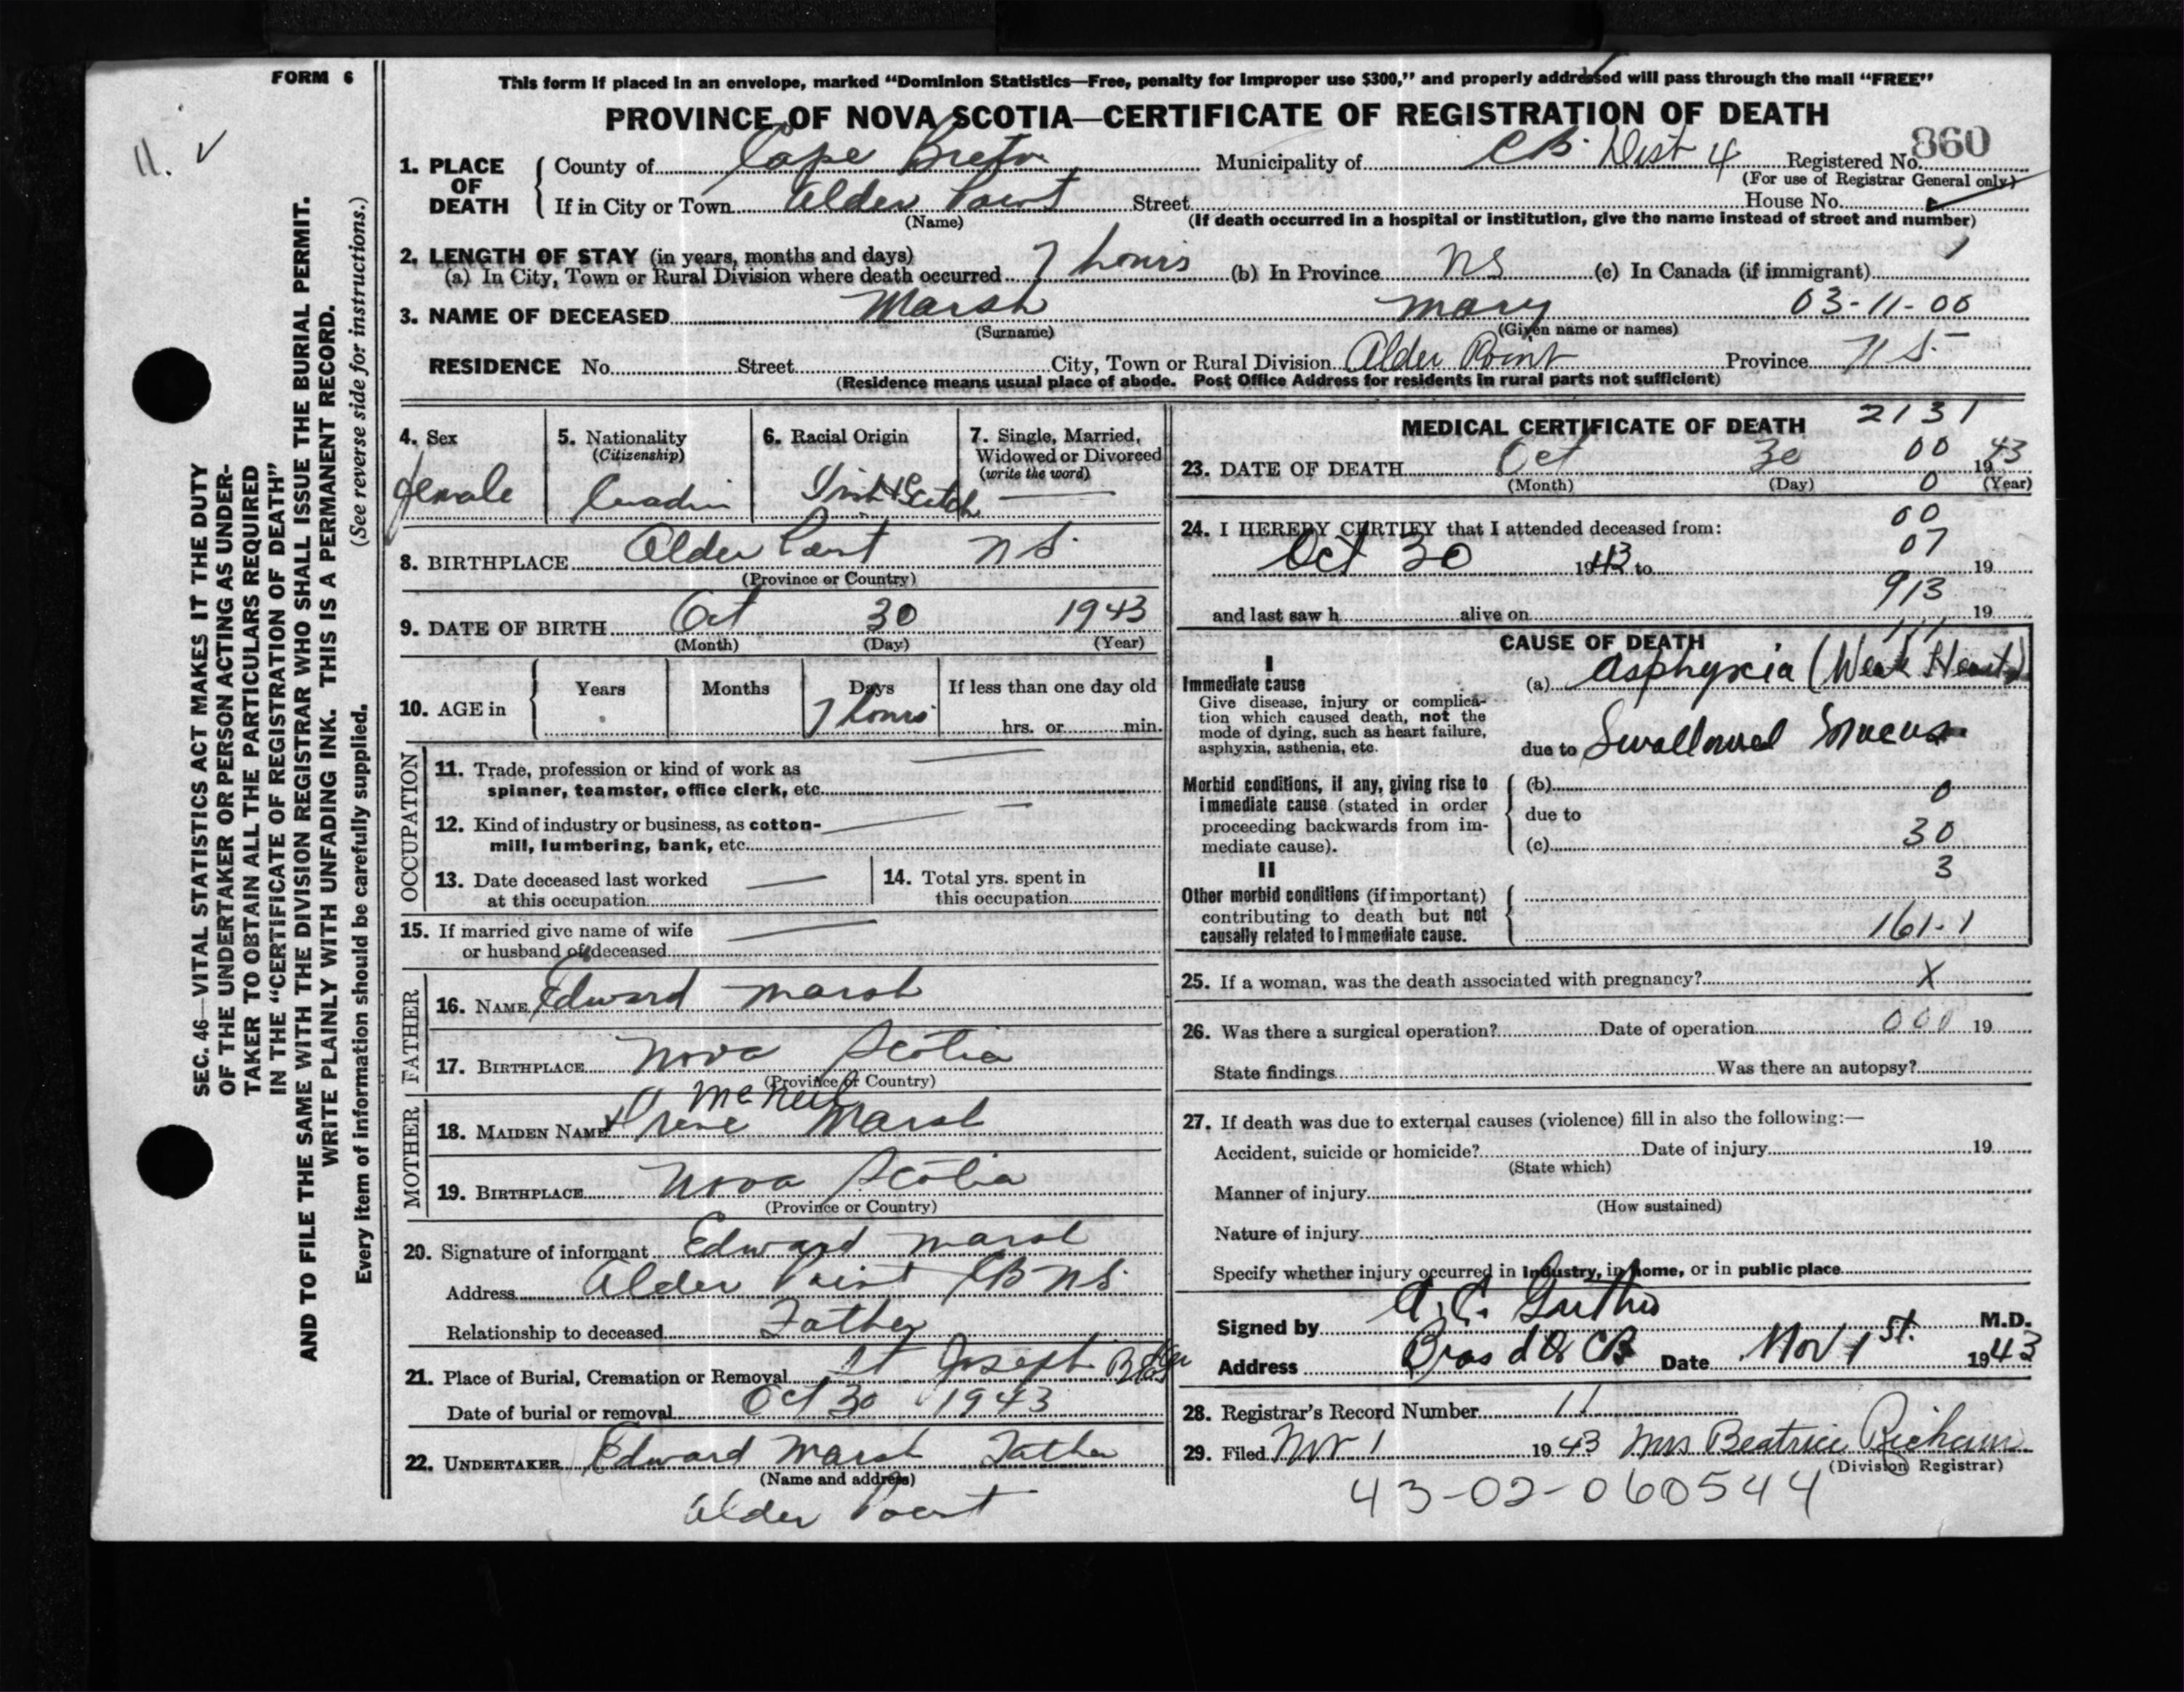 FORM 6
This form if placed in an envelope, marked “Dominion Statistics—Free, penalty for improper use $300,” and properly addressed will pass through the mail “FREE”
PROVINCE OF NOVA SCOTIA—CERTIFICATE OF REGISTRATION OF DEATH
860
11. ✓
1. PLACE OF DEATH County of Cape Breton Municipality of CB Dist 4 Registered No.
(For use of Registrar General only)
If in City or Town Alder Point Street House No.
(Name) (If death occurred in a hospital or institution, give the name instead of street and number)
2. LENGTH OF STAY (in years, months and days)
(a) In City, Town or Rural Division where death occurred 7 hours (b) In Province NS (c) In Canada (if immigrant)
3. NAME OF DECEASED Marsh Mary 03-11-00
(Surname) (Given name or names)
RESIDENCE No. Street City, Town or Rural Division Alder Point Province N S
(Residence means usual place of abode. Post Office Address for residents in rural parts not sufficient)
4. Sex
female
5. Nationality
(Citizenship)
6. Racial Origin
Irish & Scotch
7. Single, Married,
Widowed or Divorced
(write the word)
8. BIRTHPLACE Alder Point N S.
(Province or Country)
9. DATE OF BIRTH Oct 30 1943
(Month) (Day) (Year)
10. AGE in Years Months Days If less than one day old
7 hours hrs. or min.
OCCUPATION
11. Trade, profession or kind of work as
spinner, teamster, office clerk, etc.
12. Kind of industry or business, as cotton-
mill, lumbering, bank, etc.
13. Date deceased last worked
at this occupation
14. Total yrs. spent in
this occupation
15. If married give name of wife
or husband of deceased
FATHER
16. NAME Edward Marsh
17. BIRTHPLACE Nova Scotia
(Province or Country)
MOTHER
McNeil
18. MAIDEN NAME Irene Marsh
19. BIRTHPLACE Nova Scotia
(Province or Country)
20. Signature of informant Edward Marsh
Address Alder Point CB NS.
Relationship to deceased Father
21. Place of Burial, Cremation or Removal St Joseph
Date of burial or removal Oct 30 1943
22. UNDERTAKER Edward Marsh Father
(Name and address)
Alder Point
MEDICAL CERTIFICATE OF DEATH 2131
23. DATE OF DEATH Oct 30 00 1943
(Month) (Day) 0 (Year)
00
24. I HEREBY CERTIFY that I attended deceased from:
07
Oct 30 1943 to 19
913
and last saw h alive on 19
CAUSE OF DEATH
I
Immediate cause
Give disease, injury or complica-
tion which caused death, not the
mode of dying, such as heart failure,
asphyxia, asthenia, etc.
(a) Asphyxia (Weak Heart)
due to Swallowed Mucus
Morbid conditions, if any, giving rise to
immediate cause (stated in order
proceeding backwards from im-
mediate cause).
(b) 0
due to
(c) 30
3
II
Other morbid conditions (if important)
contributing to death but not
causally related to immediate cause.
161-1
25. If a woman, was the death associated with pregnancy? X
26. Was there a surgical operation? Date of operation 000 19
State findings Was there an autopsy?
27. If death was due to external causes (violence) fill in also the following:—
Accident, suicide or homicide? Date of injury 19
(State which)
Manner of injury
(How sustained)
Nature of injury
Specify whether injury occurred in Industry, in home, or in public place
Signed by A. C. M.D.
Address Bras d'Or CB Date Nov 1st. 1943
28. Registrar's Record Number 11
29. Filed Nov 1 1943 Mrs Beatrice
(Division Registrar)
43-02-060544
SEC. 46—VITAL STATISTICS ACT MAKES IT THE DUTY
OF THE UNDERTAKER OR PERSON ACTING AS UNDER-
TAKER TO OBTAIN ALL THE PARTICULARS REQUIRED
IN THE “CERTIFICATE OF REGISTRATION OF DEATH”
AND TO FILE THE SAME WITH THE DIVISION REGISTRAR WHO SHALL ISSUE THE BURIAL PERMIT.
WRITE PLAINLY WITH UNFADING INK. THIS IS A PERMANENT RECORD.
Every item of information should be carefully supplied. (See reverse side for instructions.)